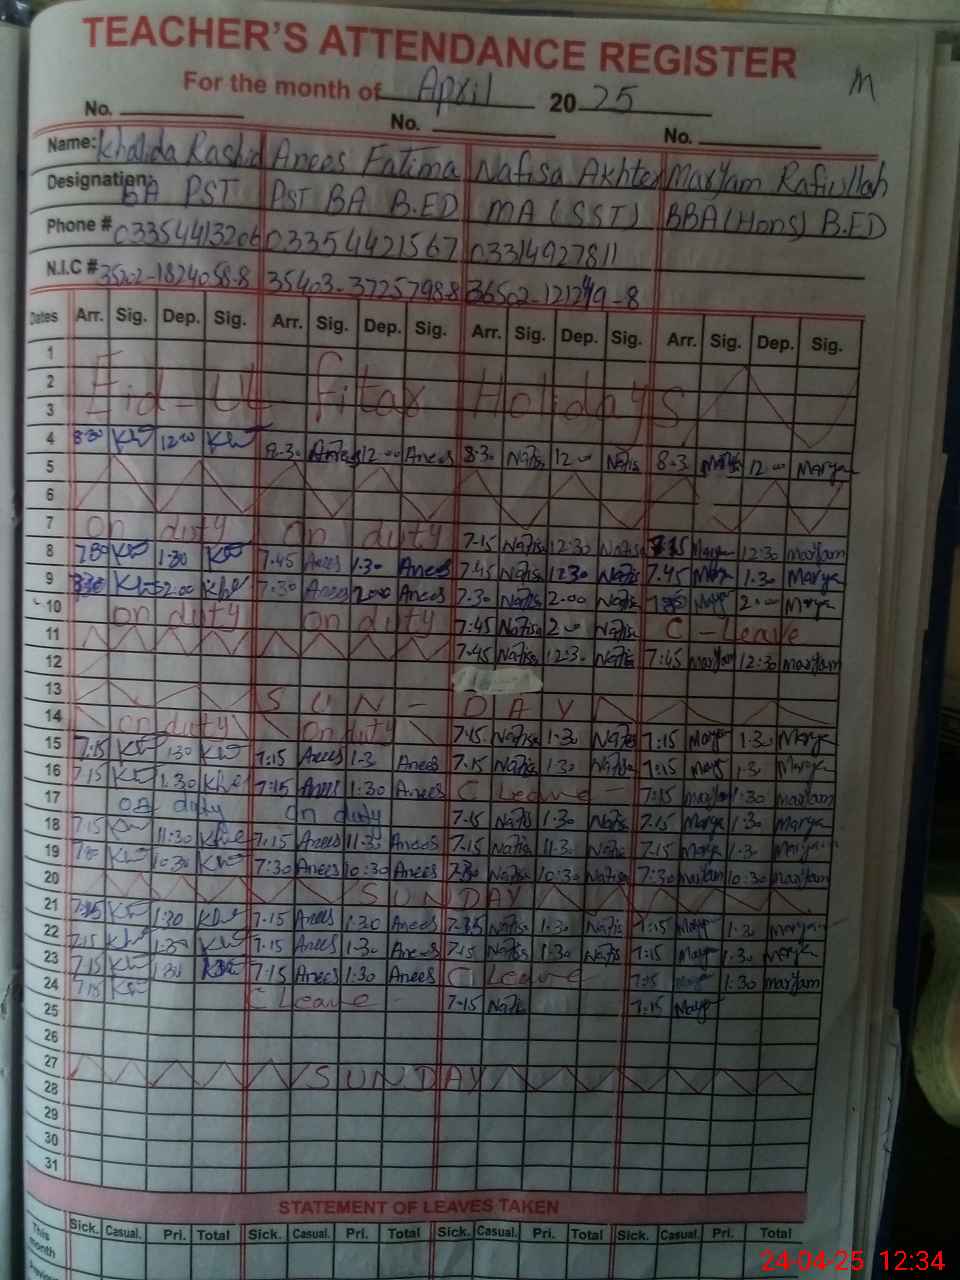 TEACHER'S ATTENDANCE REGISTER
For the month of April 2025 M
No. No. No.
Name: Khalida Rashid Anees Fatima Nafisa Akhter Maryam Rafiullah
Designation: BA PST PST BA B.ED MA (SST) BBA (Hons) B.ED
Phone # 03354413206 03354421567 03314927811
N.I.C # 35202-1824058-8 35403-3725798-8 36502- -8
Dates Arr. Sig. Dep. Sig. Arr. Sig. Dep. Sig. Arr. Sig. Dep. Sig. Arr. Sig. Dep. Sig.
1
2 Eid-Ul Fitar Holidays
3
4 8-30 Kh 12-00 Kh 8-30 Anees 12-00 Anees 8-30 Nafis 12-00 Nafis 8-3 12-00 Marya
5
6
7 on duty on duty 7-15 Nafisa 12:30 Nafisa Marya 12:30 maryam
8 1-30 7.45 Anees 1.30 Anees 7.45 Nafisa 12 30 Nafis 7.45 Marya 1.30 Marya
9 2.00 Khe 7:30 Anees 2.00 Anees 7.30 Nafisa 2.00 Nafis 2.00 Marya
10 on duty on duty 7:45 Nafisa 2.00 Nafisa C - Leave
11 7.45 Nafisa 12:3 Nafis 7:45 maryam 12:30 maryam
12
13 SUN - DAY
14 on duty on duty 7.15 Nafisa 1.30 Nafis 7:15 Marya 1.30 Marya
15 7:15 130 7:15 Anees 1-3 Anees 7.15 Nafisa 1.30 Nafisa 7:15 Marya 1.3 Marya
16 7.15 1.30 Khe 7:15 Anees 1:30 Anees C Leave - 7:15 maryam 1:30 maryam
17 on duty on duty 7.15 Nafisa 1.30 Nafis 7.15 Marya 1.30 Marya
18 7.15 11:30 Khe 7.15 Anees 11.30 Anees 7.15 Nafisa 11.30 Nafisa 7.15 Marya 1.30 Maryam
19 10:30 7:30 Anees 10:30 Anees Nafisa 10:30 Nafisa 7:30 maryam 10:30 maryam
20 SUNDAY
21 1:30 Khe 7.15 Anees 1:30 Anees Nafis 1.30 Nafis 7:15 Marya 1.30 maryam
22 7.15 Khe 1.30 7.15 Anees 1.30 Anees 7.15 Nafisa 1.30 Nafis 7:15 Marya 1.30 Marya
23 7.15 1.30 7:15 Anees 1:30 Anees C Leave 7:15 1:30 maryam
24 7.15 C Leave - 7.15 Nafis 7:15 Marya
25
26
27 SUNDAY
28
29
30
31
STATEMENT OF LEAVES TAKEN
Sick. Casual. Pri. Total Sick. Casual. Pri. Total Sick. Casual. Pri. Total Sick. Casual. Pri. Total
This month
24-04-25 12:34